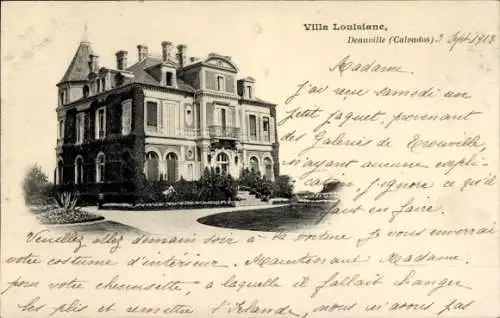 Villa Louisiane,
Deauville (Calvados) 3 Sept 1913
Madame,
J'ai reçu samedi un
petit paquet, provenant
des Galeries de Trouville
n'ayant aucune expli
j'ignore ce qu'il
faut en faire.
Veuillez allez demain soir à St voiture, je vous enverrai
votre costume d'intérieur. Maintenant Madame,
pour votre chemisette, à laquelle il fallait changer
les plis et remettre l'Irlande, nous n'avons pas